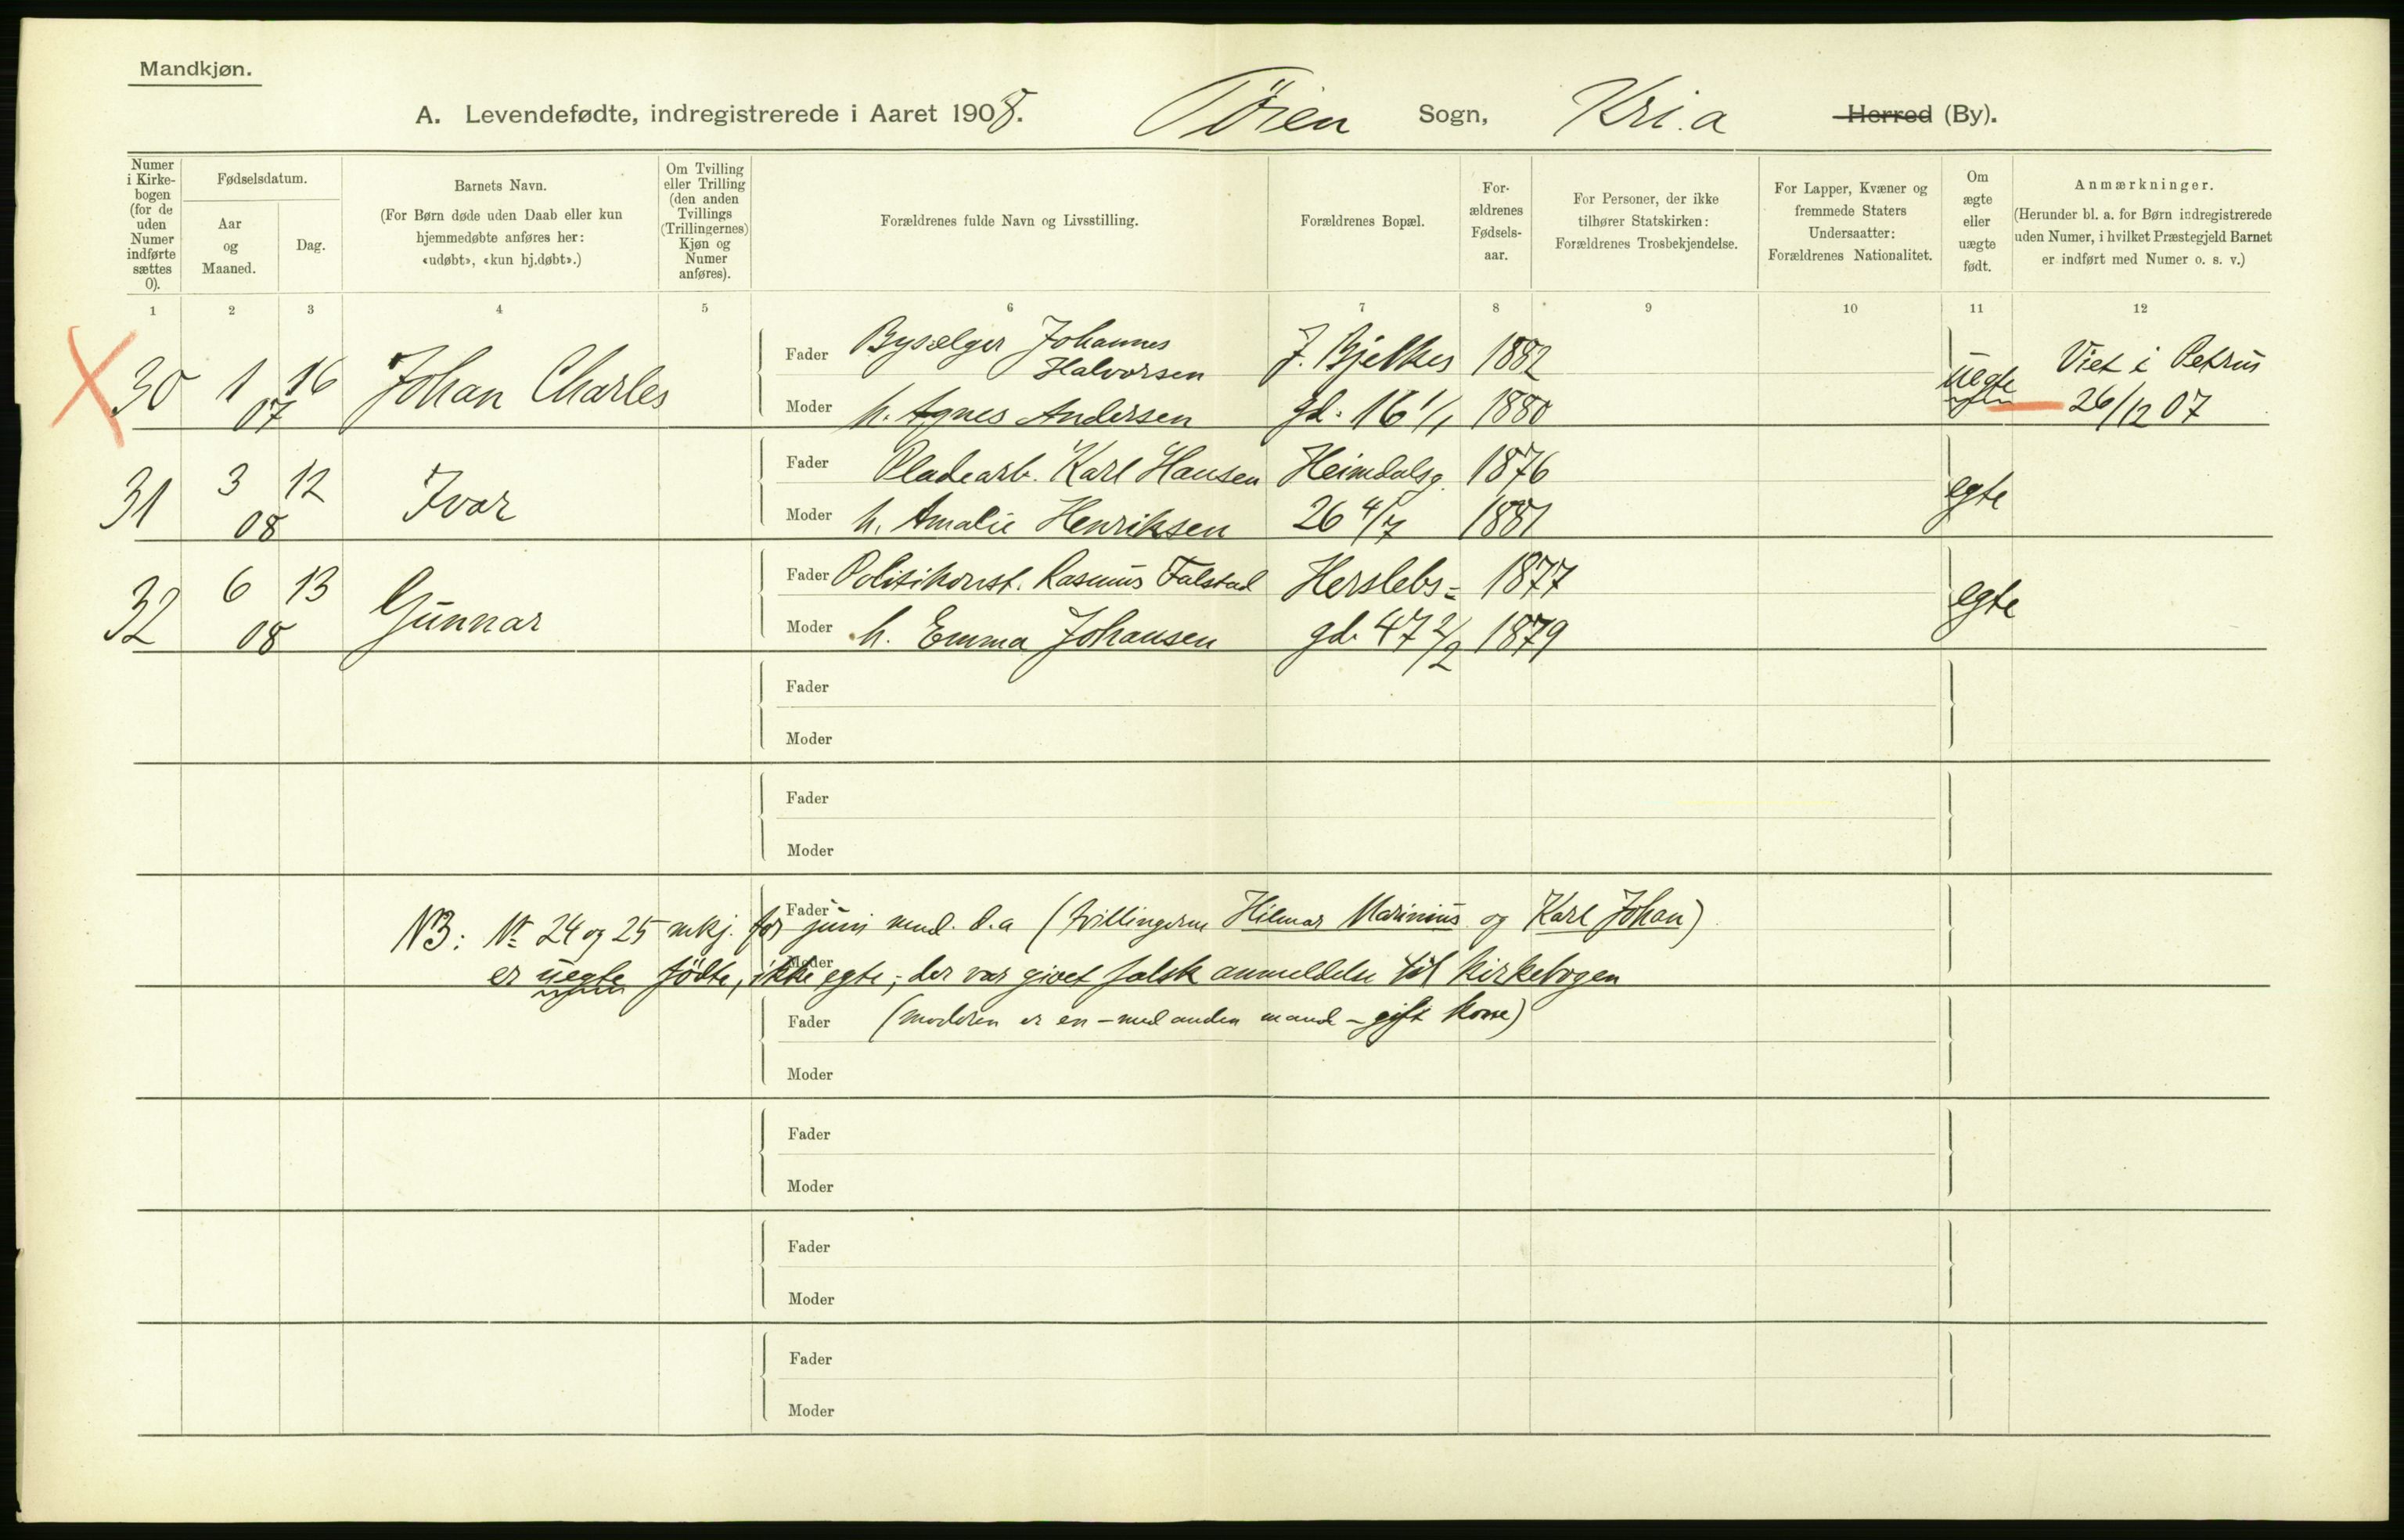 Mandkjøn.
A. Levendefødte, indregistrerede i Aaret 1908. Tøien Sogn, Kri.a Herred (By).
Numer i Kirke-bogen (for de uden Numer indførte sættes 0).
Fødselsdatum.
Aar og Maaned.
Dag.
Barnets Navn.
(For Børn døde uden Daab eller kun hjemmedøbte anføres her: «udøbt», «kun hj.døbt».)
Om Tvilling eller Trilling (den anden Tvillings (Trillingernes) Kjøn og Numer anføres).
Forældrenes fulde Navn og Livsstilling.
Forældrenes Bopæl.
For-ældrenes Fødsels-aar.
For Personer, der ikke tilhører Statskirken: Forældrenes Trosbekjendelse.
For Lapper, Kvæner og fremmede Staters Undersaatter: Forældrenes Nationalitet.
Om ægte eller uægte født.
Anmærkninger.
(Herunder bl. a. for Børn indregistrerede uden Numer, i hvilket Præstegjeld Barnet er indført med Numer o. s. v.)
1 2 3 4 5 6 7 8 9 10 11 12
30 1 07 16 Johan Charles
Fader Bysælger Johannes Halvorsen J. Bjelkes 1882
Moder h. Agnes Andersen gd. 16 1/1 1880
uegte Viet i Petrus 26/12 07
31 3 08 12 Ivar
Fader Pladearb. Karl Hansen Heimdalsg. 1876
Moder h. Amalie Henriksen 26 4/7 1881
egte
32 6 08 13 Gunnar
Fader Politikonst. Rasmus Falstad Herslebs= 1877
Moder h. Emma Johansen gd. 47 2/2 1879
egte
Fader
Moder
Fader
Moder
Fader
NB: Nr 24 og 25 mkj. for juni mnd. d.a (tvillingerne Hilmar Marinius og Karl Johan)
Moder
er uegte fødte, ikke egte; der var givet falsk anmeldelse til kirkebogen
Fader (moderen er en – med anden mand – gift kone)
Moder
Fader
Moder
Fader
Moder
Fader
Moder